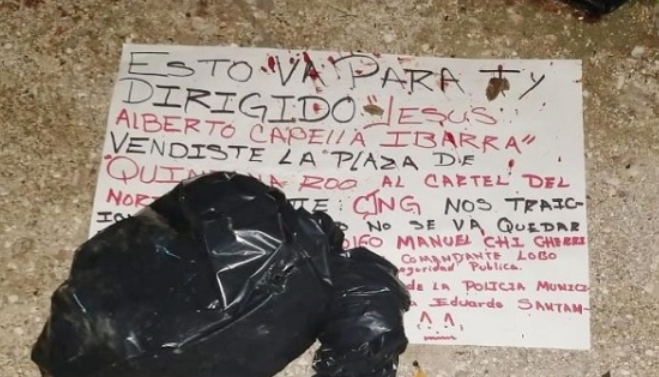 ESTO VA PARA TY
DIRIGIDO "JESUS
ALBERTO CAPELLA IBARRA"
VENDISTE LA PLAZA DE
QUIN ROO AL CARTEL DEL
CJNG NOS TRAIC-
NO SE VA QUEDAR
MANUEL CHI
COMANDANTE LOBO
Publica.
DE LA POLICIA MUNICI
Eduardo SANTAM-